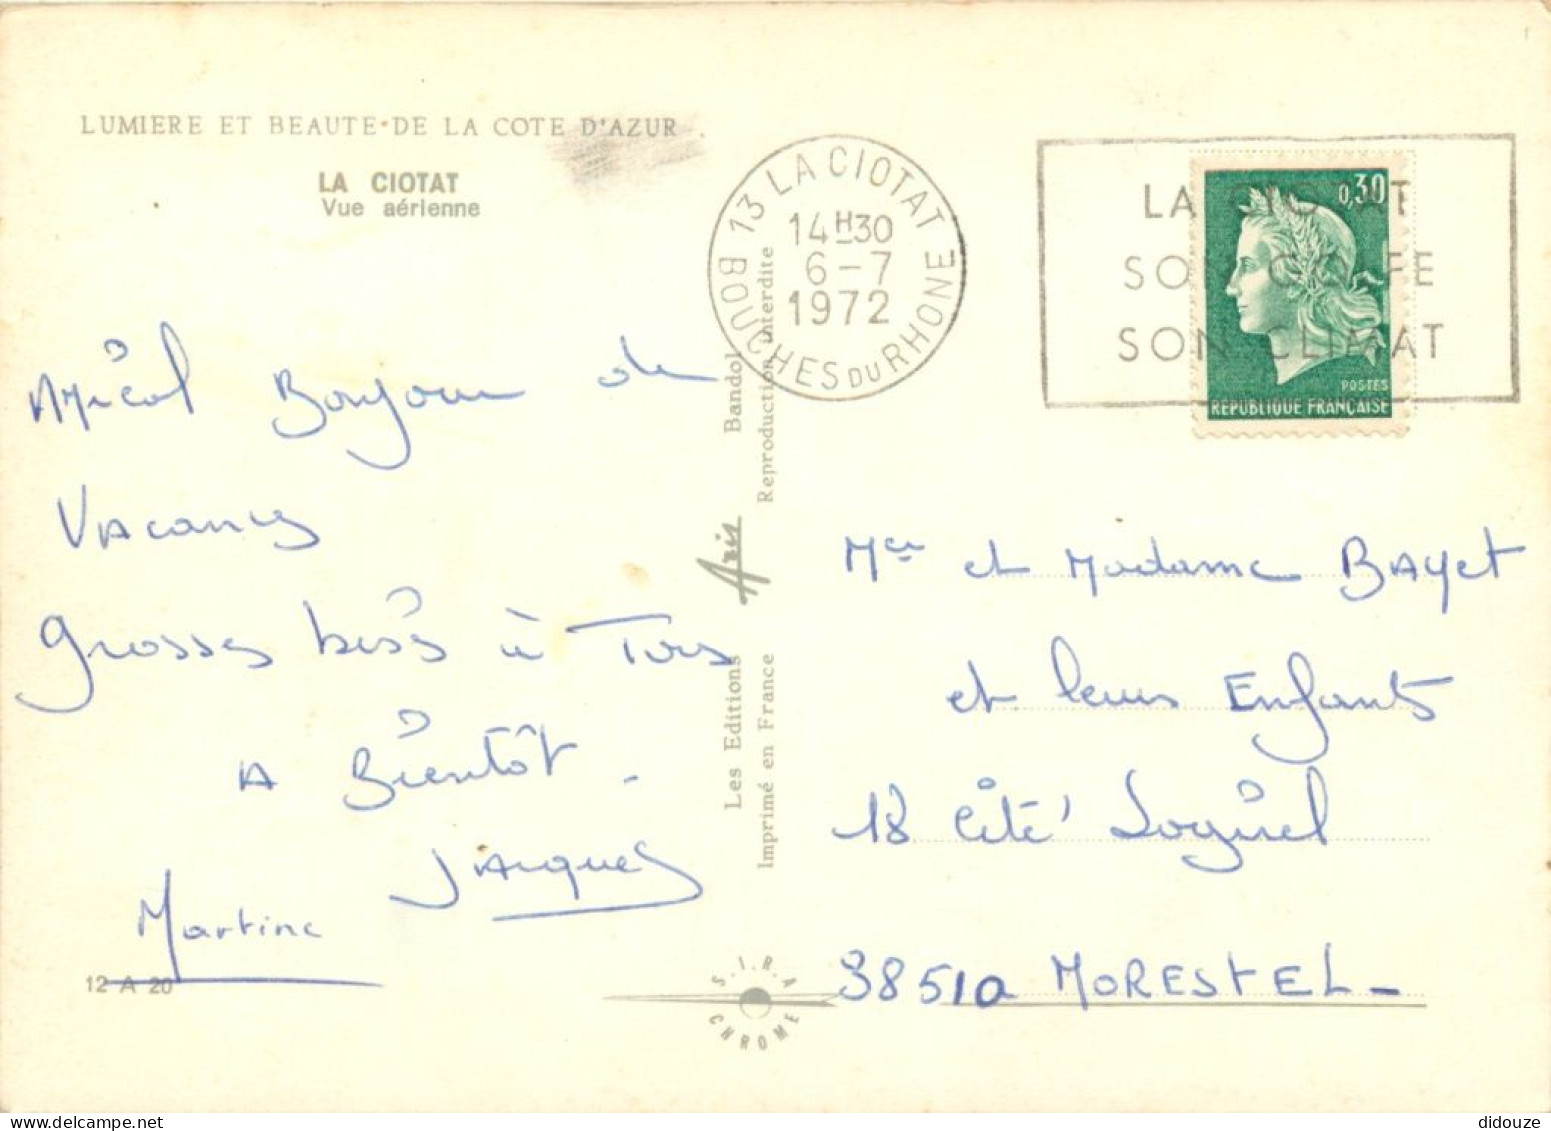 LUMIERE ET BEAUTE DE LA COTE D'AZUR
LA CIOTAT
Vue aérienne
13 LA CIOTAT
14H30
6-7
1972
BOUCHES DU RHONE
LA CIOTAT
SON GOLFE
SON CLIMAT
0,30
POSTES
REPUBLIQUE FRANÇAISE
Amical Bonjour de
Vacances
Grosses bises à Tous
A Bientôt.
Jacques
Martine
12 A 20
Les Editions Aris Bandol
Imprimé en France Reproduction interdite
S.I.R.A.
CHROME
Mr et Madame BAyet
et leurs Enfants
18 Cité Logirel
38510 MORESTEL_
didouze